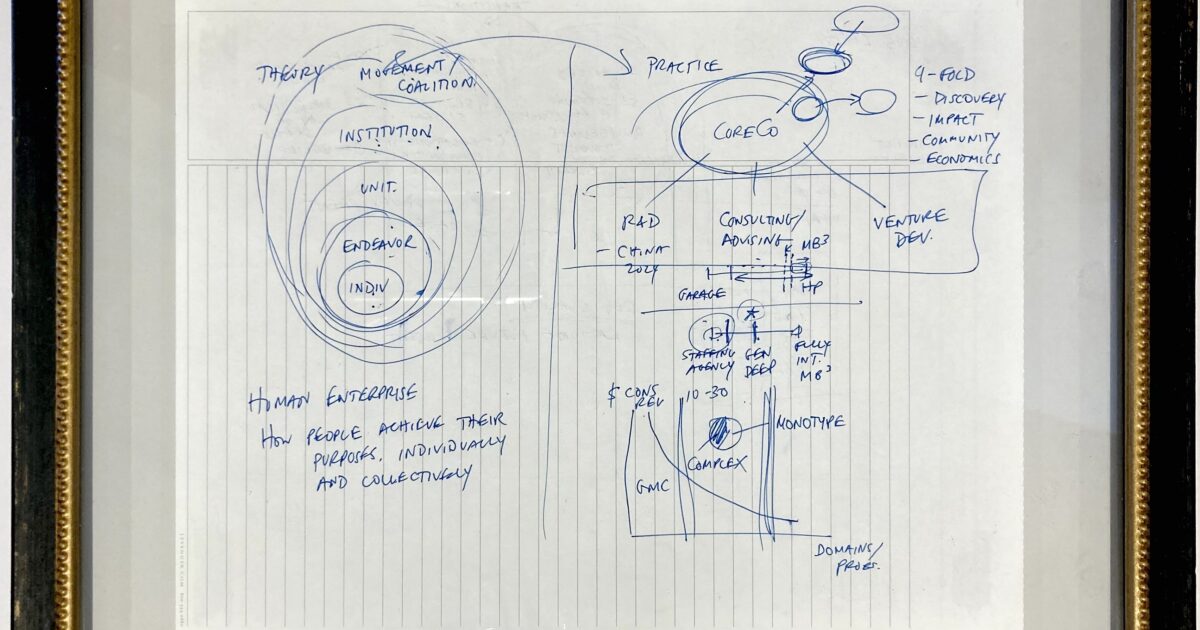 THEORY
MOVEMENT/
COALITION
INSTITUTION
UNIT.
ENDEAVOR
INDIV
HUMAN ENTERPRISE
HOW PEOPLE ACHIEVE THEIR
PURPOSES, INDIVIDUALLY
AND COLLECTIVELY
PRACTICE
CORECO
4-FOLD
- DISCOVERY
- IMPACT
- COMMUNITY
- ECONOMICS
R&D
- CHINA
2024
CONSULTING/
ADVISING
VENTURE
DEV.
MB³
GARAGE
HP
STAFFING
AGENCY
GEN
DEEP
FULLY
INT.
MB³
$ CONS
REV
10-30
MONOTYPE
COMPLEX
GMC
DOMAINS/